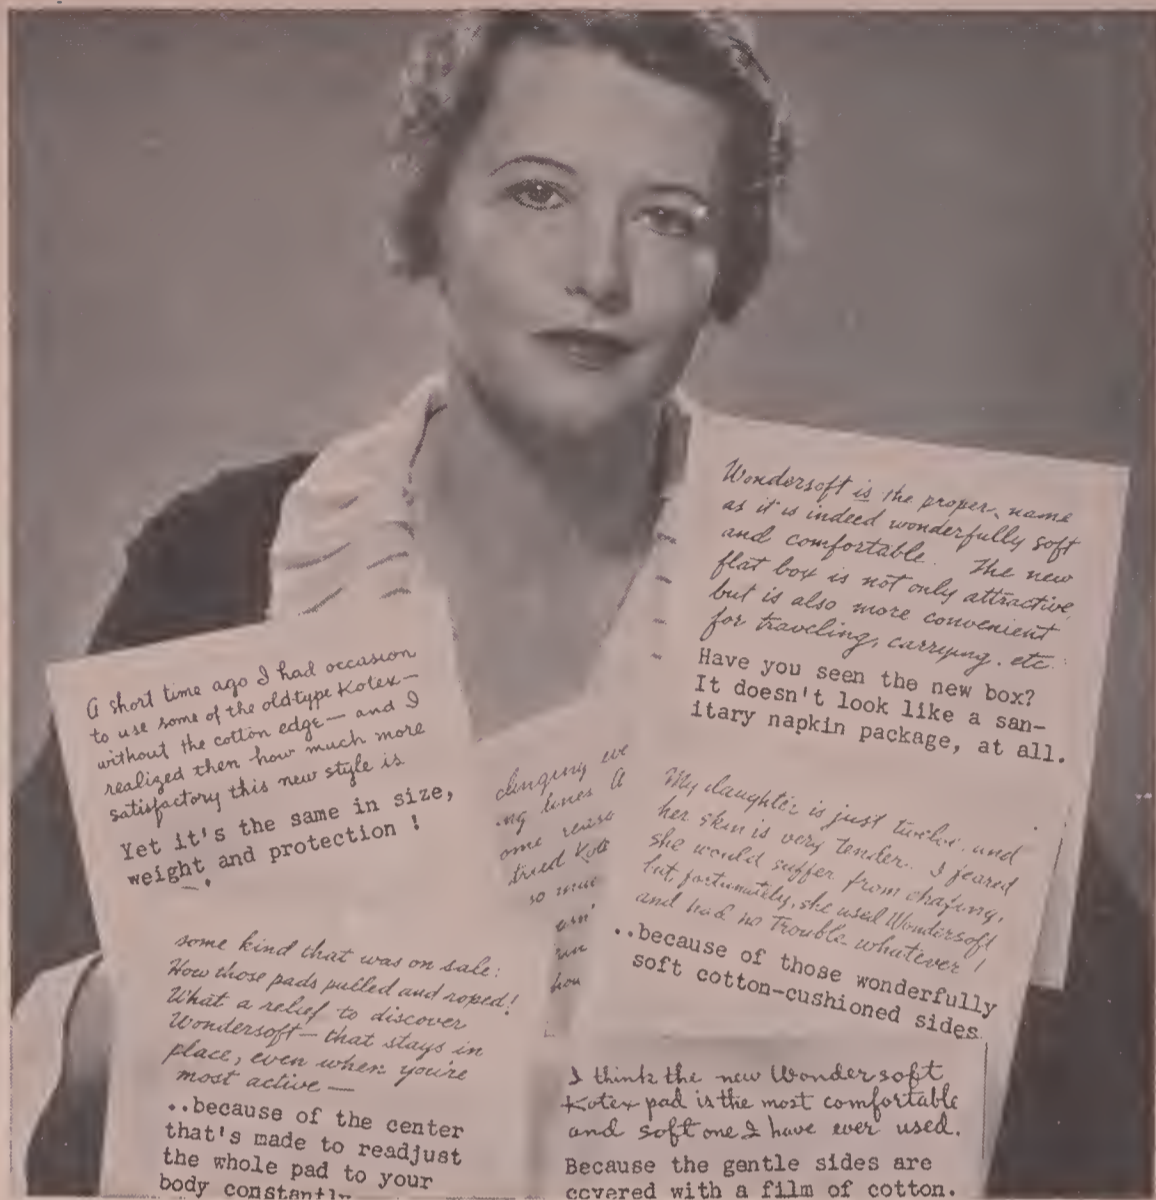 A short time ago I had occasion
to use some of the old type Kotex—
without the cotton edge— and I
realized then how much more
satisfactory this new style is
Yet it's the same in size,
weight and protection !
some kind that was on sale:
How those pads pulled and roped!
What a relief to discover
Wondersoft— that stays in
place, even when you're
most active—
..because of the center
that's made to readjust
the whole pad to your
body constantly
clinging ev
ng lines A
ome reaso
tried Kote
so muc
hou
Wondersoft is the proper name
as it is indeed wonderfully soft
and comfortable. The new
flat box is not only attractive,
but is also more convenient
for traveling, carrying. etc.
Have you seen the new box?
It doesn't look like a san-
itary napkin package, at all.
My daughter is just twelve. and
her skin is very tender. I feared
she would suffer from chafing,
but, fortunately, she used Wondersoft
and had no trouble whatever!
..because of those wonderfully
soft cotton-cushioned sides.
I think the new Wondersoft
Kotex pad is the most comfortable
and soft one I have ever used.
Because the gentle sides are
covered with a film of cotton.